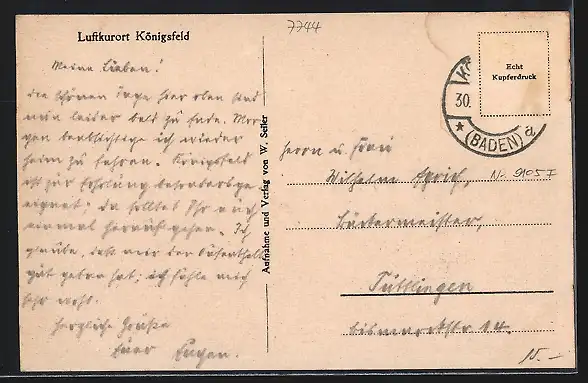 7744
Luftkurort Königsfeld
Meine Lieben!
Die schönen Tage hier oben sind
nun leider bald zu Ende. Mor-
gen beabsichtige ich wieder
heim zu fahren. Königsfeld
ist zur Erholung besonders ge-
eignet. Da solltet Ihr auch
einmal herauf gehen. Ich
glaube, daß mir der Aufenthalt
gut getan hat; ich fühle mich
sehr wohl.
Herzliche Grüße
Euer Eugen.
Aufnahme und Verlag von W. Seiler
Echt
Kupferdruck
30.
(BADEN) a
Herrn u. Frau
Wilhelm
Nr. 9105 F
Bäckermeister,
Tuttlingen
Bismarckstr 14.
10.-